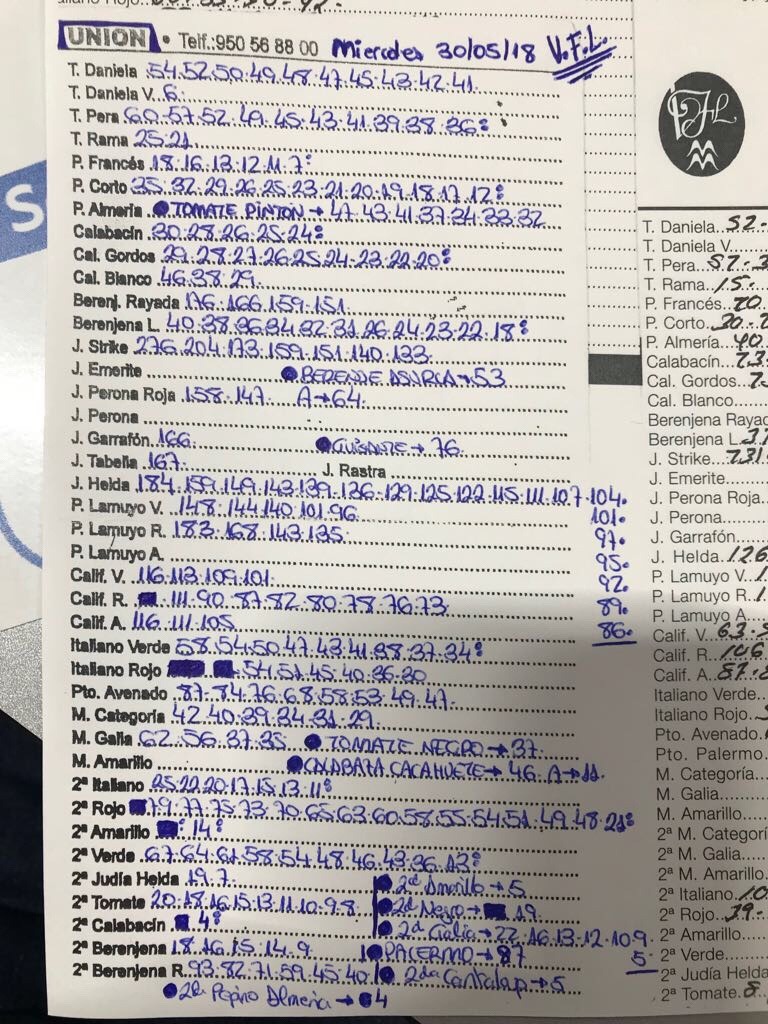 UNION • Telf.:950 56 88 00 Miercoles 30/05/18 V.F.L.
T. Daniela 54.52.50.49.48.47.45.43.42.41.
T. Daniela V. 6.
T. Pera 60.57.52.49.45.43.41.39.38.36:
T. Rama 25.21
P. Francés 18.16.13.12.11.7:
P. Corto 35.32.29.26.25.23.21.20.19.18.17.12:
P. Almería ● TOMATE PINTON → 47.43.41.37.34.33.32
Calabacín 30.28.26.25.24:
Cal. Gordos 29.28.27.26.25.24.23.22.20:
Cal. Blanco 46.38.29.
Berenj. Rayada 176.166.159.151.
Berenjena L. 40.38.36.34.32.31.26.24.23.22.18:
J. Strike 276.204.173.159.151.140.133.
J. Emerite ● BERENJE ASURCA → 53
J. Perona Roja 158.147. A → 64.
J. Perona
J. Garrafón 166. ● GUISANTE → 76.
J. Tabeña 167. J. Rastra
J. Helda 184.159.149.143.139.136.129.125.122.115.111.107.104.
P. Lamuyo V. 148.144.140.101.96. 101.
P. Lamuyo R. 183.168.143.135. 97.
P. Lamuyo A. 95.
Calif. V. 116.113.109.101. 92.
Calif. R. 111.90.87.82.80.78.76.73. 89.
Calif. A. 116.111.105. 86.
Italiano Verde 58.54.50.47.43.41.38.37.34:
Italiano Rojo 54.51.45.40.36.30
Pto. Avenado 87.84.76.68.58.53.49.47.
M. Categoría 42.40.39.34.31.29.
M. Galia 62.56.37.35. ● TOMATE NEGRO → 37.
M. Amarillo ● CALABAZA CACAHUETE → 46. A → 11.
2ª Italiano 25.22.20.17.15.13.11:
2ª Rojo 79.77.75.73.70.65.63.60.58.55.54.51.49.48.21:
2ª Amarillo 14:
2ª Verde 67.64.61.58.54.48.46.43.36.13:
2ª Judía Helda 19.7. ● 2ª Amarillo → 5
2ª Tomate 20.18.16.15.13.11.10.9.8 ● 2ª Negro → 19.
2ª Calabacín 4: ● 2ª Galia → 22.16.13.12.10.9.
2ª Berenjena 18.16.15.14.9. ● PALERMO → 87 5.
2ª Berenjena R. 93.82.71.59.45.40 ● 2da Cantalap → 5
● 2da Pepino Almeria → 4
T. Daniela 52.
T. Daniela V.
T. Pera 57.3
T. Rama 15.
P. Francés 20
P. Corto 30.2
P. Almería 40
Calabacín 23.
Cal. Gordos 2
Cal. Blanco
Berenjena Rayad
Berenjena L. 37
J. Strike 231
J. Emerite
J. Perona Roja
J. Perona
J. Garrafón
J. Helda 126
P. Lamuyo V. 1
P. Lamuyo R. 1
P. Lamuyo A.
Calif. V. 63.
Calif. R. 106
Calif. A. 87.8
Italiano Verde
Italiano Rojo
Pto. Avenado
Pto. Palermo
M. Categoría
M. Galia
M. Amarillo
2ª M. Categorí
2ª M. Galia
2ª M. Amarillo
2ª Italiano 10
2ª Rojo 39.
2ª Amarillo
2ª Verde
2ª Judía Helda
2ª Tomate 8